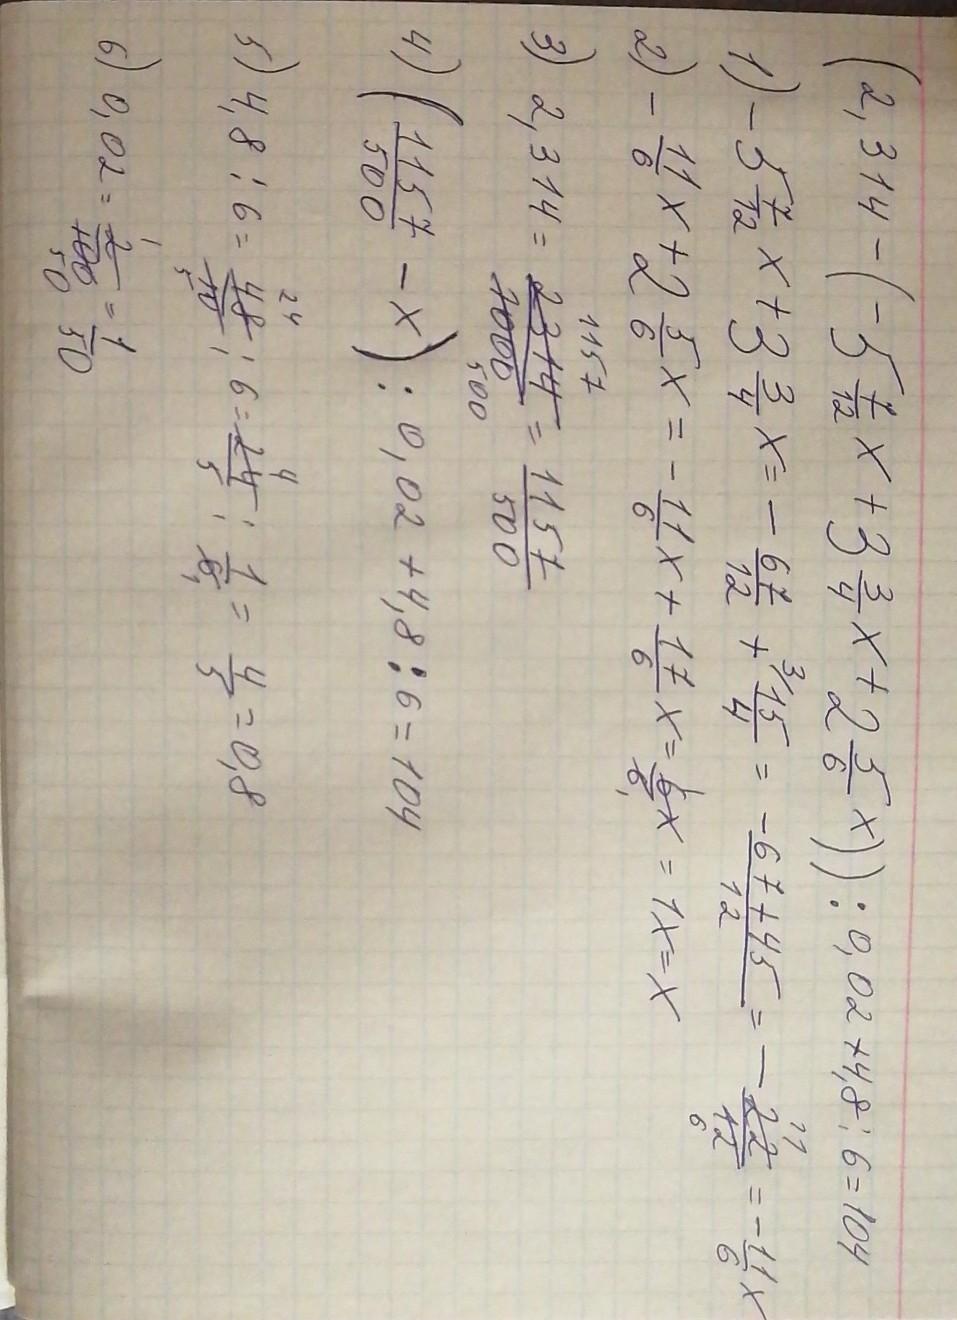 (2,314 - (-5 7/12 x + 3 3/4 x + 2 5/6 x)) : 0,02 + 4,8 : 6 = 104
1) - 5 7/12 x + 3 3/4 x = - 67/12 + 3/ 15/4 = -67+45/12 = - 22/12 11 6 = - 11/6 x
2) - 11/6 x + 2 5/6 x = - 11/6 x + 17/6 x = 6/6 1 x = 1x = x
3) 2,314 = 2314/1000 1157 500 = 1157/500
4) (1157/500 - x) : 0,02 + 4,8 : 6 = 104
5) 4,8 : 6 = 48/10 24 5 : 6 = 24/5 4 : 1/6 1 = 4/5 = 0,8
6) 0,02 = 2/100 1 50 = 1/50